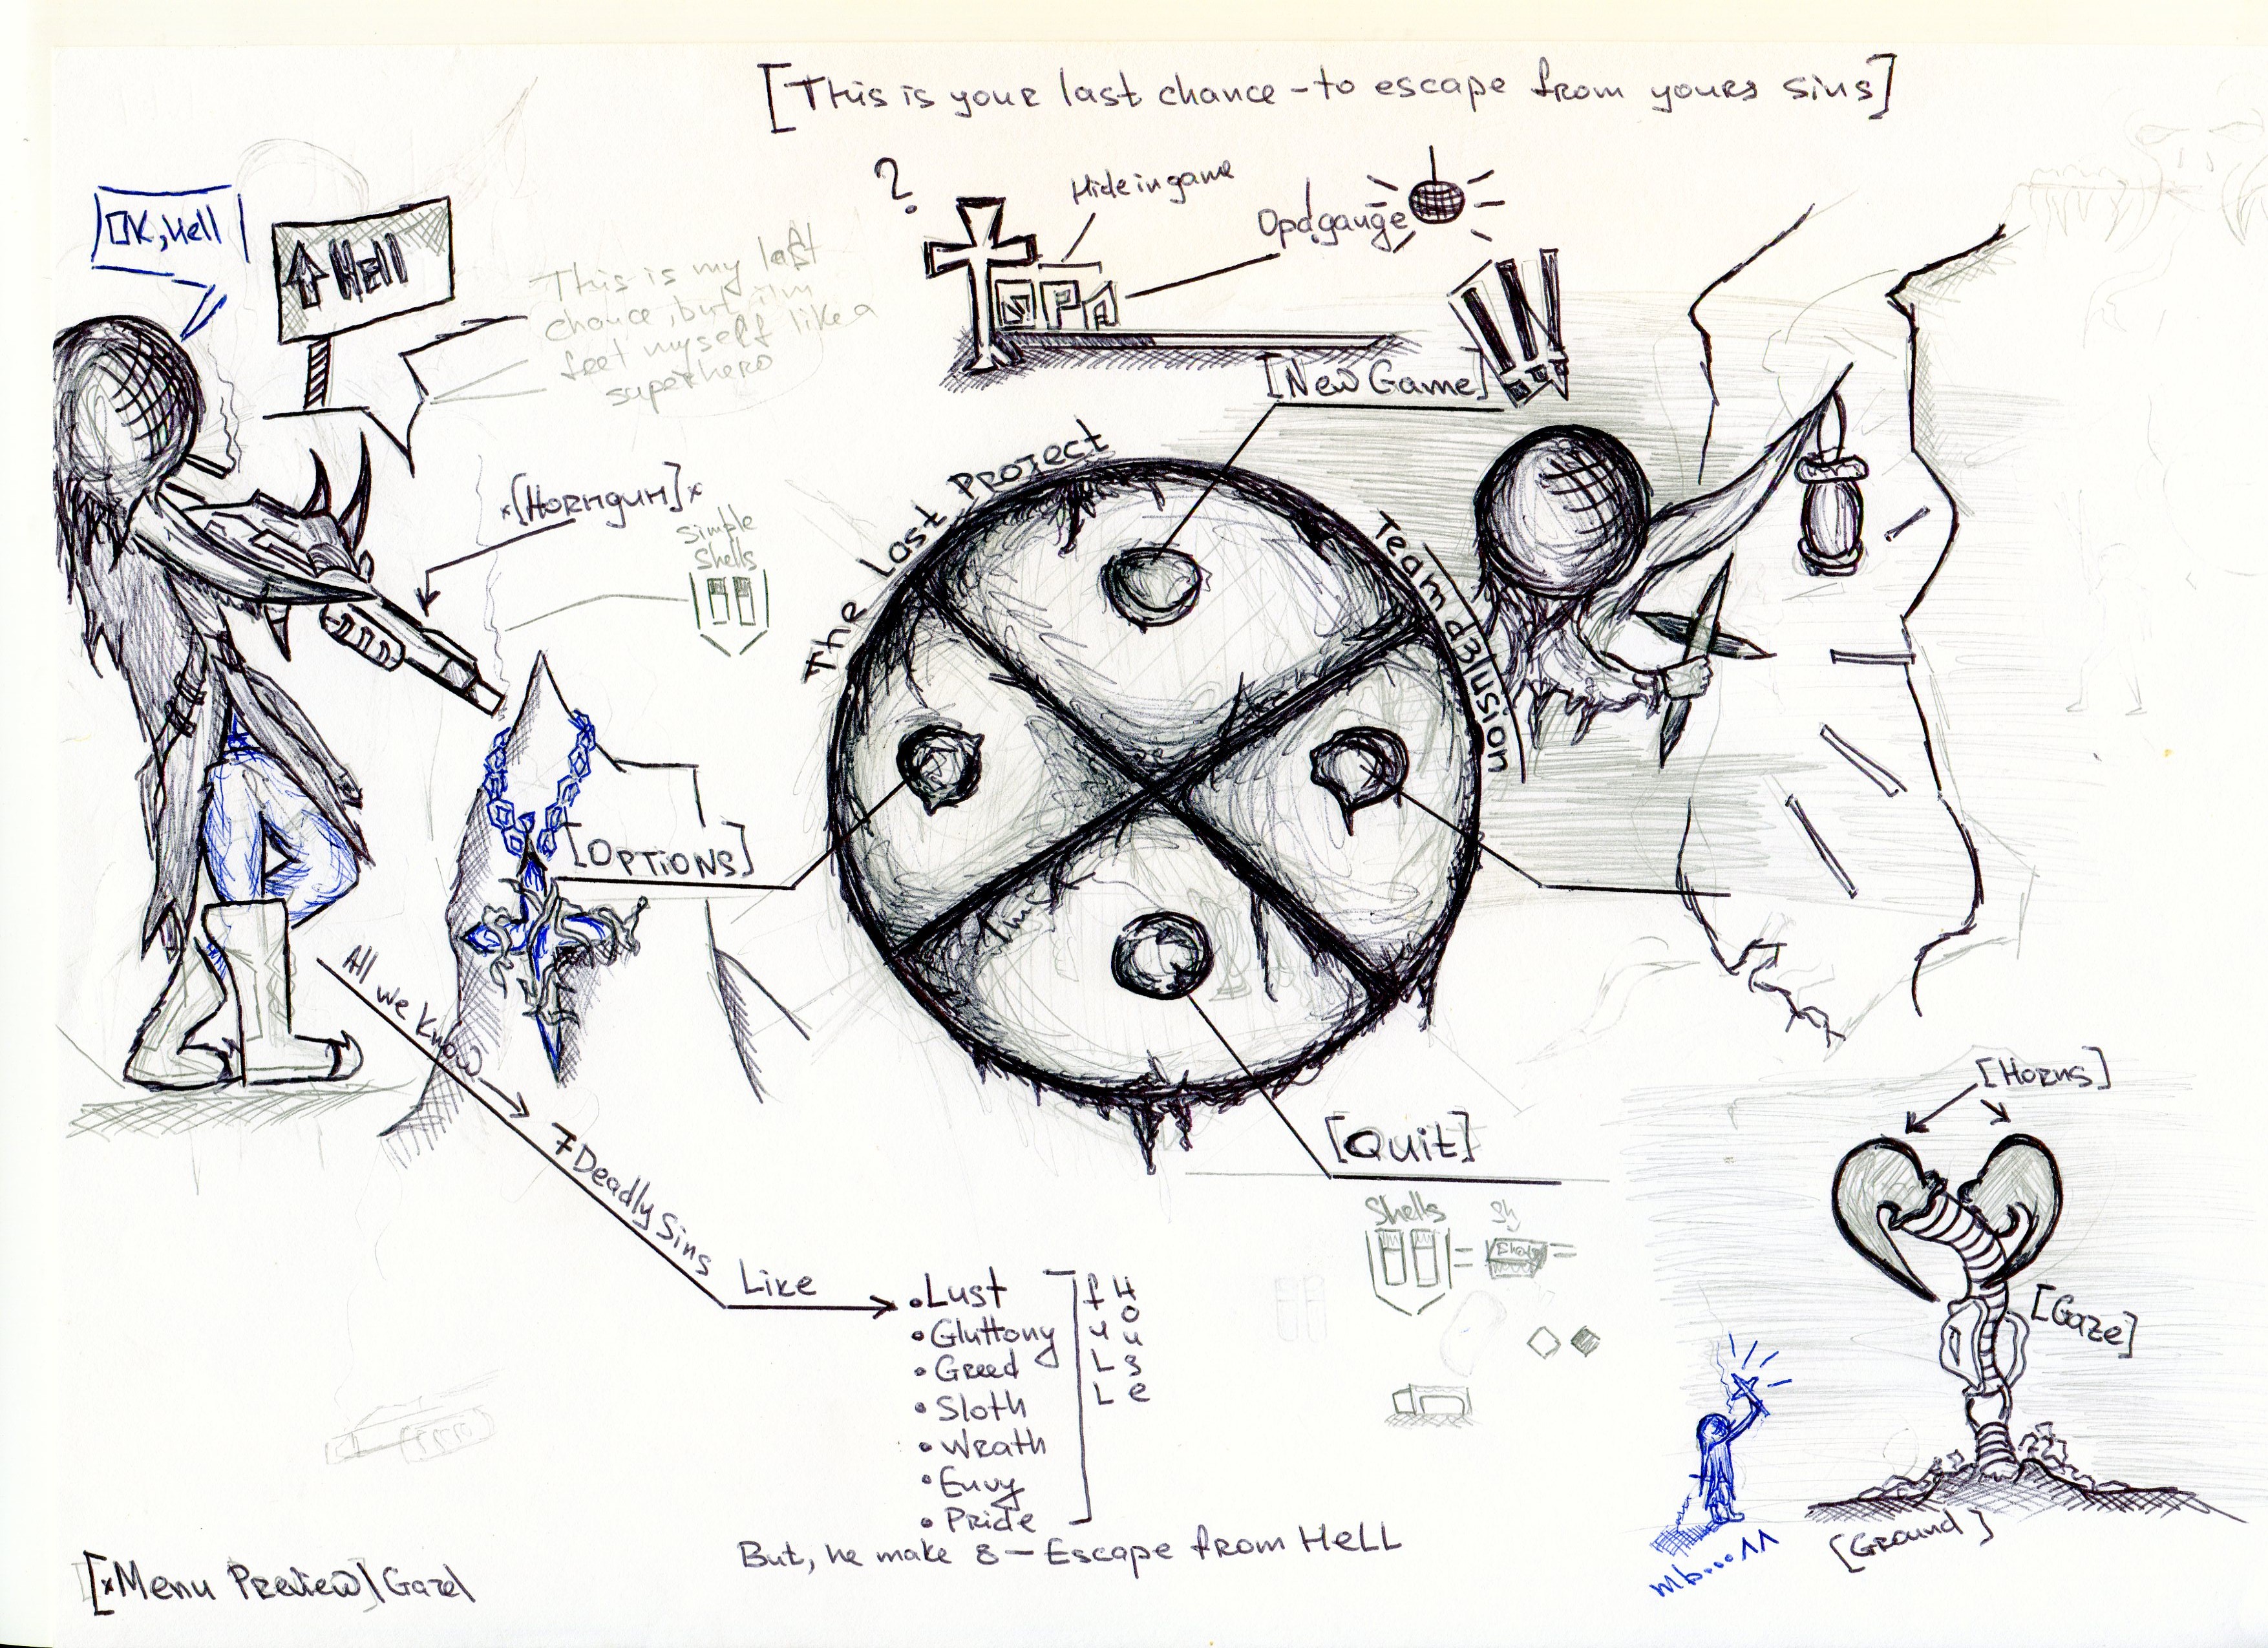 [This is your last chance - to escape from yours sins]
?
Hide in game
Opdgauge
OK, Hell
Hell
This is my last
chance, but i'm
feel myself like a
superhero
[New Game]
!!!
*[Horngun]*
Simple
Shells
The Last Project
Team d3lusion
[Options]
All we know
7 Deadly Sins
Like
• Lust
• Gluttony
• Greed
• Sloth
• Wrath
• Envy
• Pride
But, he make 8 - Escape from Hell
[Quit]
Shells
Sh
[Horns]
[Gaze]
[Ground]
mb...^^
[*Menu Preview]\Gaze\